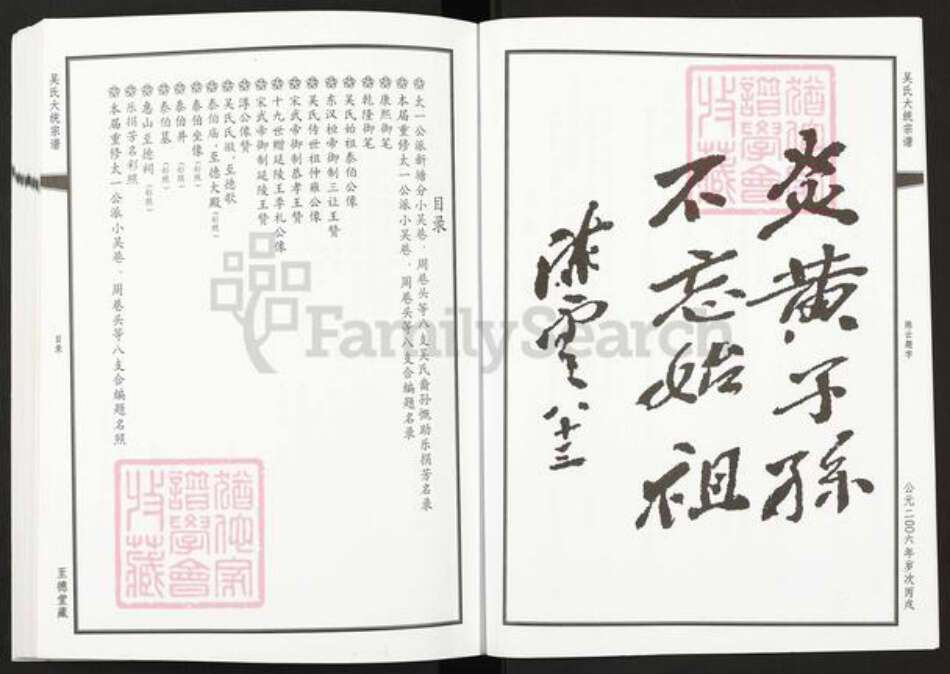 吴氏大统宗谱
炎黄子孙
不忘始祖
陈云 八十三
陈云题字
公元二〇〇六年岁次丙戌
目录
太一公派新塘分小吴巷、周巷头等八支吴氏裔孙慨助乐捐芳名录
本届重修太一公派小吴巷、周巷头等八支合编题名录
康熙御笔
乾隆御笔
吴氏始祖泰伯公像
东汉桓帝御制三让王赞
吴氏传世祖仲雍公像
宋武帝御制恭孝王赞
十九世赠延陵王季札公像
宋武帝御制延陵王赞
淳公像赞
吴氏氏徽、至德歌
泰伯庙、至德大殿(彩照)
泰伯坐像(彩照)
泰伯井(彩照)
泰伯墓(彩照)
惠山至德祠(彩照)
乐捐芳名彩照
本届重修太一公派小吴巷、周巷头等八支合编题名照
吴氏大统宗谱
目录
至德堂藏
FamilySearch
谱学会
收藏
谱学会
收藏